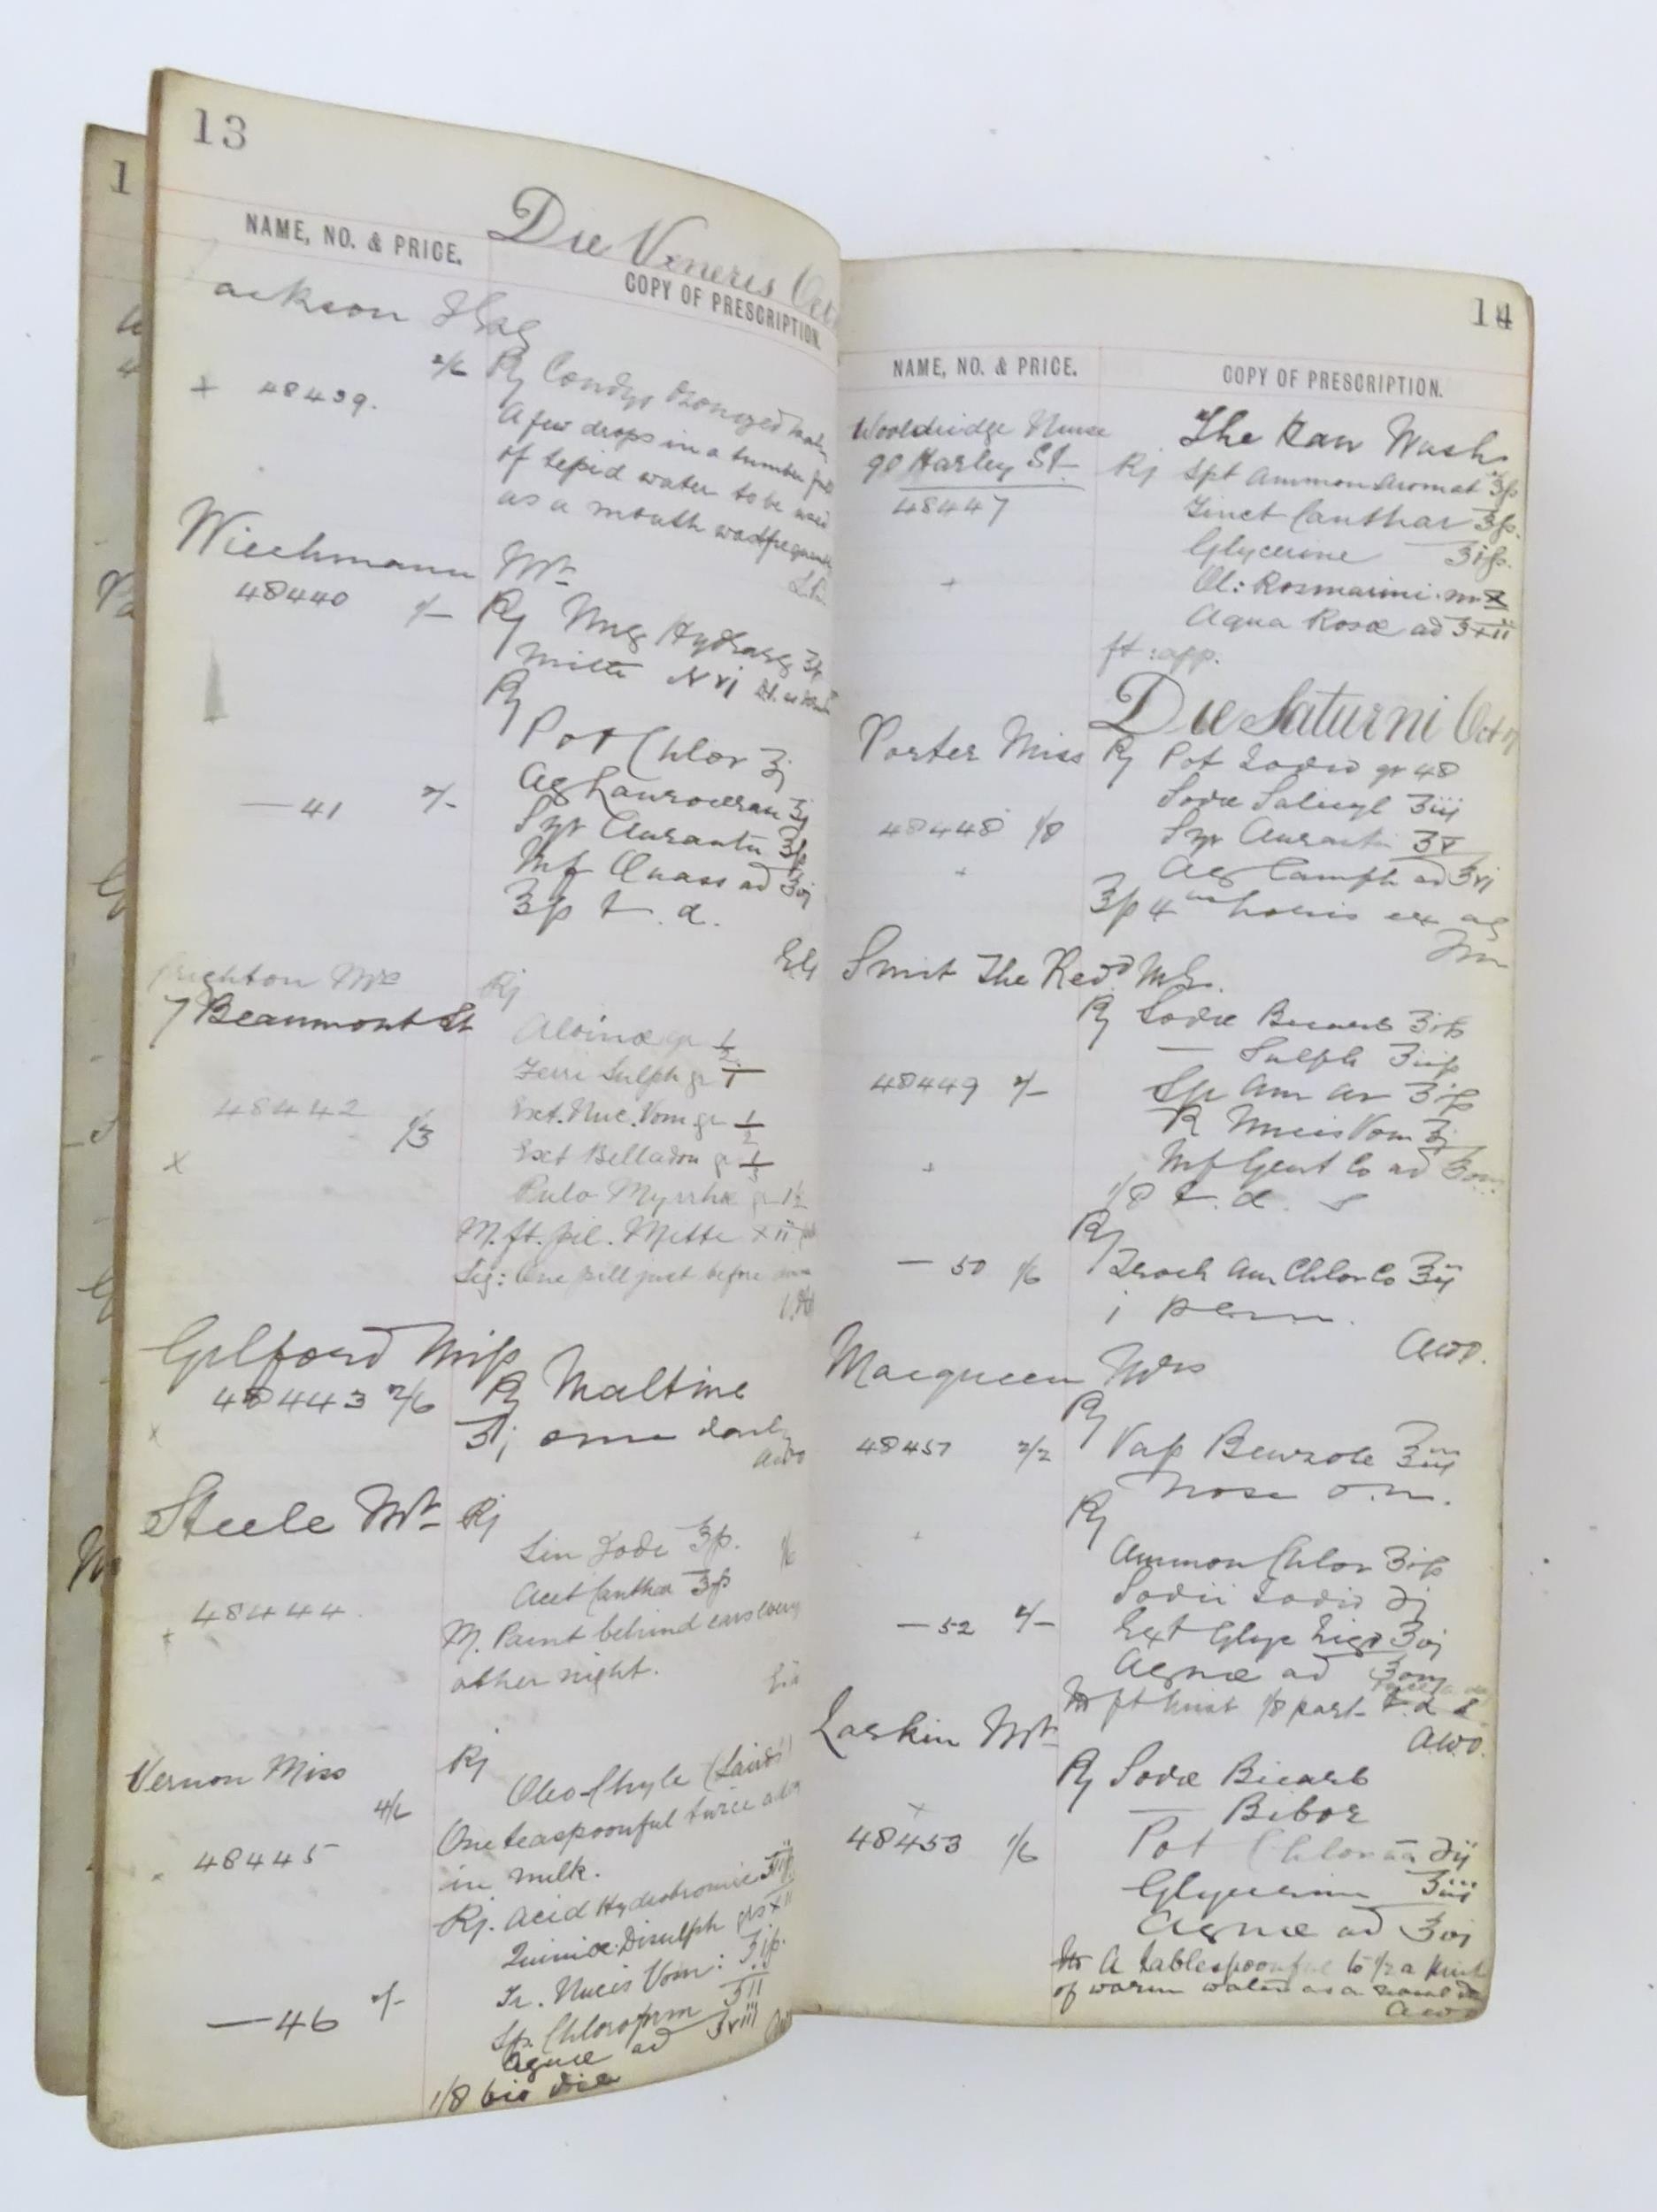 13
Die Veneris Oct
NAME, NO. & PRICE.
COPY OF PRESCRIPTION.
ackson
2/6 Rj Condys Ozonized Water
+ 48439.
A few drops in a tumbler full
of tepid water to be used
as a mouth wash frequently
Wiechmann Mr
48440 1/- Rj Ung Hydrarg
Mitte N VI
Rj
Pot Chlor ʒj
—41 2/- Aq Laurocerasi ʒj
Syr Aurantii ʒß
Inf Quass ad ʒvj
ʒß t. d.
righton Mrs
Rj
7 Beaumont St
Aloinæ gr 1/2
Ferri Sulph gr 1
48442 1/3 Ext. Nuc. Vom gr 1/2
Ext Belladon gr 1/3
x
Pulv Myrrhæ gr 1½
M. ft. pil. Mitte xii
Sig: One pill just before
Gilford Miss
48443 2/6 Rj Maltine
ʒj omn daily
x
AWO
Steele Mr Rj
Lin Iodi ʒß.
Acet Canthar ʒß
48444
+
M. Paint behind ears every
other night.
Vernon Miss Rj
Oleo-Chyle (Lairds)
4/6
One teaspoonful twice a day
48445
in milk.
Rj. Acid Hydrobromic
Quiniæ Disulph grs xii
Tr. Nucis Vom: ʒiß.
—46 2/- Sp. Chloroform ʒii
Aquæ ad ʒviii
1/8 bis die
14
NAME, NO. & PRICE.
COPY OF PRESCRIPTION.
Wooldridge Nurse
The Raw Wash
90 Harley St
Rj Spt Ammon Aromat ʒß
48447
Tinct Canthar ʒß.
Glycerine ʒiß.
+
Ol: Rosmarini. m x
Aqua Rosæ ad ʒxii
ft: app.
Die Saturni Oct 17
Porter Miss Rj Pot Iodid gr 48
Sodæ Salicyl ʒiij
48448 1/8 Syr Aurantii ʒv
+
Aq Camph ad ʒvj
ʒß 4 horis ex aq
Smit The Revd M.S.
Rj Sodæ Bicarb ʒiß
— Sulph ʒiiß
48449 2/- Sp Am Ar ʒiß
Nucis Vom ʒj
+
Inf Gent Co ad
1/8 t. d. s
Rj
—50 1/6 Troch Am Chlor Co ʒij
i p.r.n.
AWO.
Macqueen Mrs
Rj
48451 2/2 Vap Benzole ʒiij
Nose o.n.
Rj
+
Ammon Chlor ʒiß
Sodii Iodid ℈j
—52 2/- Ext Glyc Liq ʒvj
Aquæ ad
M ft mist 1/8 part t. d. s
AWO.
Laskin Mr
Rj Sodæ Bicarb
+
— Bibor
48453 1/6 Pot Chlor aa ℈ij
Glycerini ʒiij
Aquæ ad ʒvj
A tablespoonful to 1/2 a pint
of warm water as a nasal
AWO